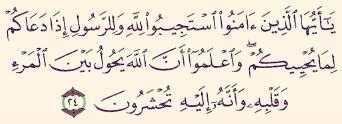 يَـٰٓأَيُّهَا ٱلَّذِينَ ءَامَنُوا۟ ٱسْتَجِيبُوا۟ لِلَّهِ وَلِلرَّسُولِ إِذَا دَعَاكُمْ
لِمَا يُحْيِيكُمْ ۖ وَٱعْلَمُوٓا۟ أَنَّ ٱللَّهَ يَحُولُ بَيْنَ ٱلْمَرْءِ
وَقَلْبِهِۦ وَأَنَّهُۥٓ إِلَيْهِ تُحْشَرُونَ ٢٤